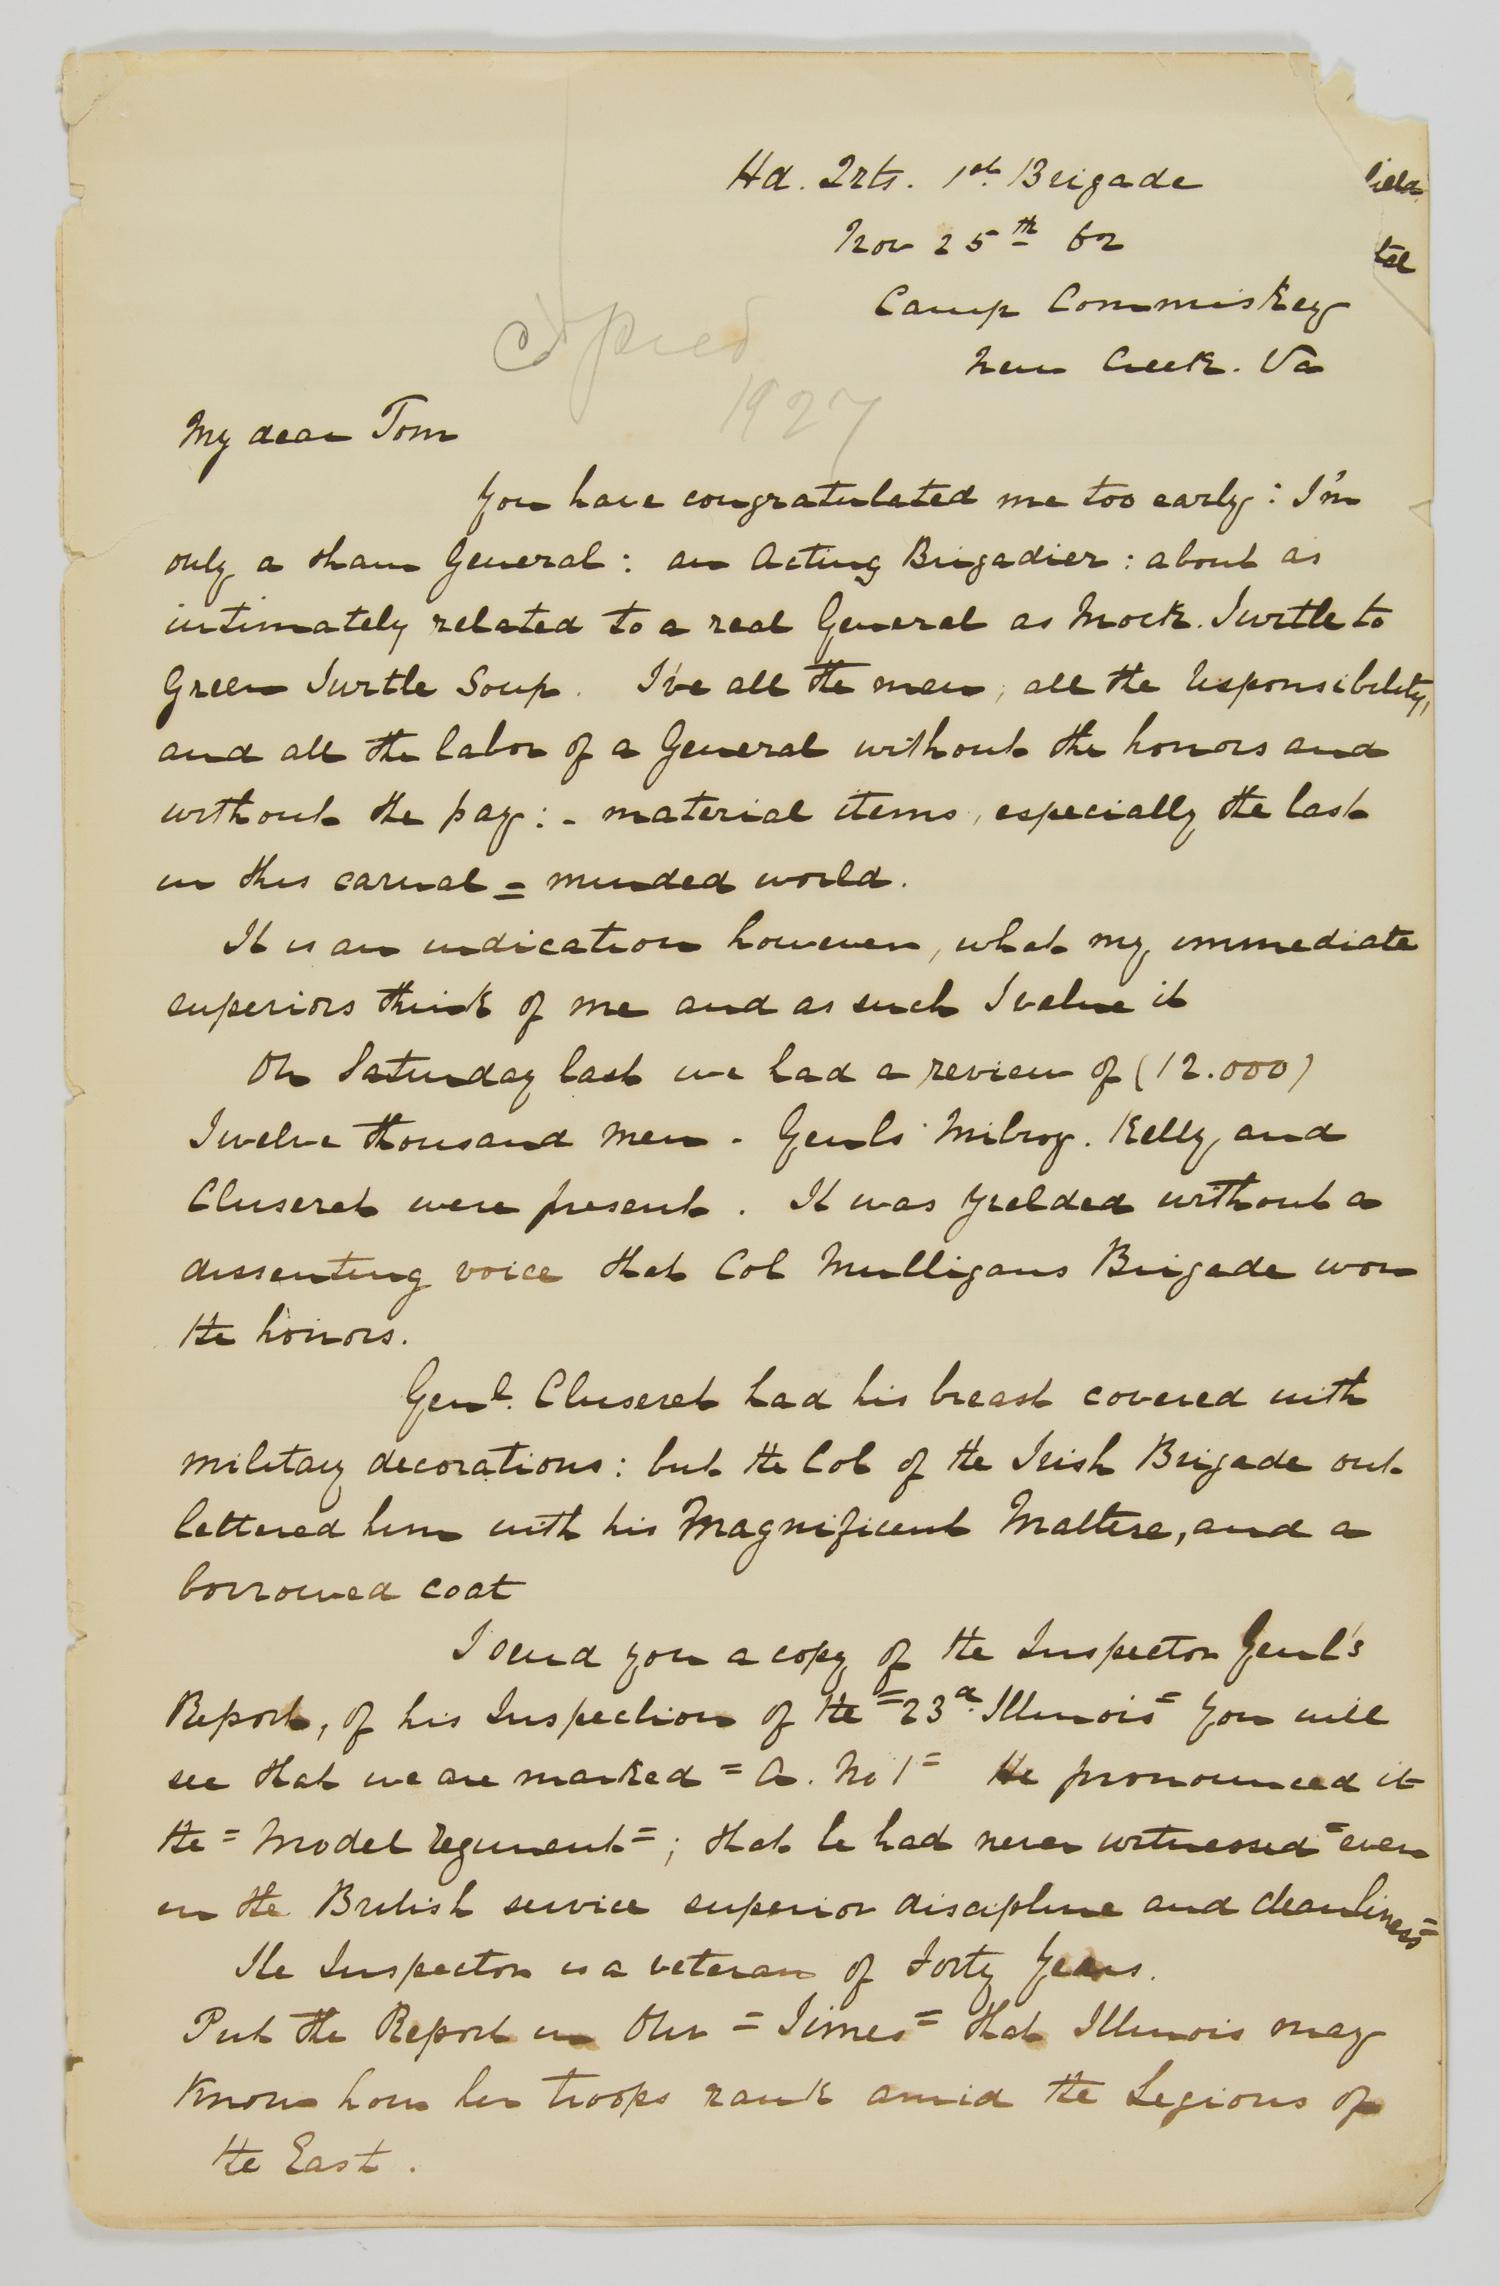 Hd. Qrts. 1st. Brigade
Nov 25th 62
Camp Commiskey
New Creek. Va
Copied
1927
My dear Tom
You have congratulated me too early: I'm
only a sham General: an Acting Brigadier: about as
intimately related to a real General as Mock. Turtle to
Green Turtle Soup. I've all the men, all the responsibility,
and all the labor of a General without the honors and
without the pay:- material items, especially the last
in this carnal = minded world.
It is an indication however, what my immediate
superiors think of me and as such I value it
On Saturday last we had a review of (12.000)
Twelve thousand men - Genls Milroy. Kelly, and
Cluseret were present. It was yielded without a
dissenting voice that Col Mulligans Brigade won
the honors.
Genl. Cluseret had his breast covered with
military decorations: but the Col of the Irish Brigade out
lettered him with his Magnificent Maltese, and a
borrowed coat
I send you a copy of the Inspector Genl's
Report, of his Inspection of the "23d. Illinois" You will
see that we are marked "A. No 1" He pronounced it
the "Model regiment"; that he had never witnessed "even
in the British service superior discipline and cleanliness"
The Inspector is a veteran of Forty Years.
Put the Report in Our "Times" that Illinois may
Know how her troops rank amid the Legions of
the East.